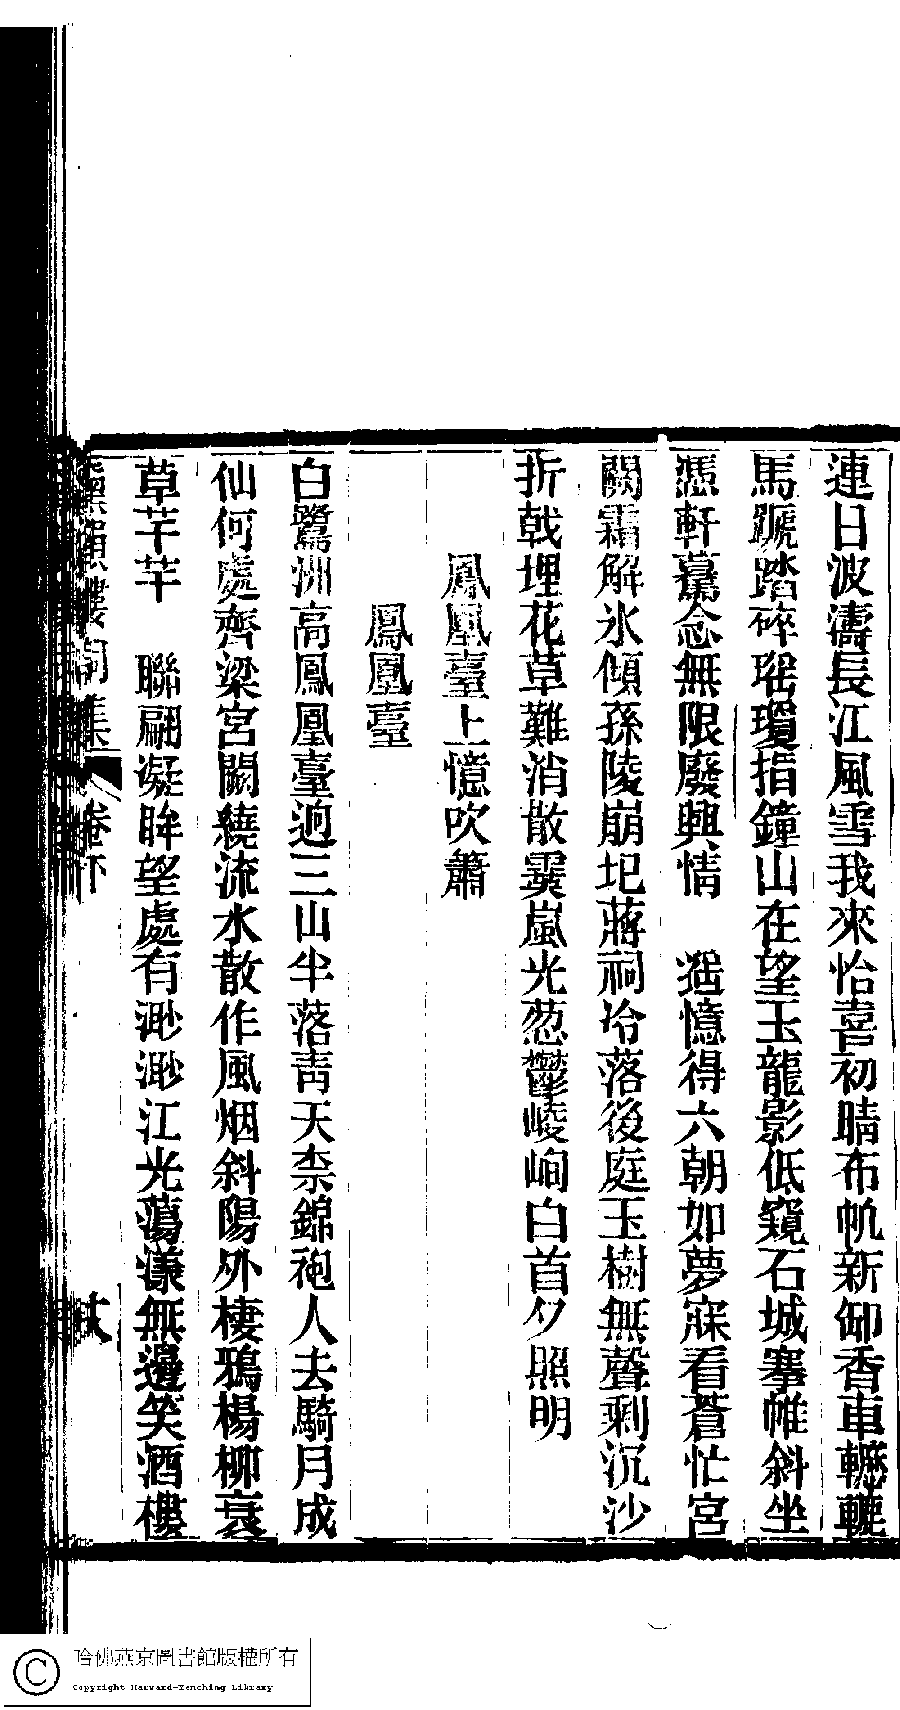 連日波濤長江風雪我來怡喜初晴布帆新卸香車轣轆
馬蹏踏碎瑤瓊指鐘山在望玉龍影低窺石城搴帷斜坐
憑軒驀念無限廢興情　遐憶得六朝如夢寐看蒼茫宮
闕霜解氷傾孫陵崩圮蔣祠冷落後庭玉樹無聲剩沉沙
折戟埋花草難消散霙嵐光葱鬱崚峋白首夕照明
鳳凰臺上憶吹簫
鳳凰臺
白鷺洲高鳳凰臺迥三山半落靑天柰錦袍人去騎月成
仙何處齊梁宮闕繞流水散作風烟斜陽外棲鴉楊柳衰
草芊芊　聯翩凝眸望處有渺渺江光蕩漾無邊笑酒樓
樓詞集 卷下
哈佛燕京圖書館版權所有
Copyright Harvard-Yenching Library